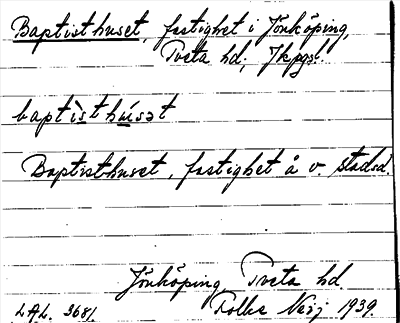 Baptisthuset, fastighet i Jönköping,
Tveta hd, Jkpgs l.
baptìsthúsət
Baptisthuset, fastighet å v. stadsd.
Jönköping Tveta hd
LAL. 3681. Folke Neij 1939.